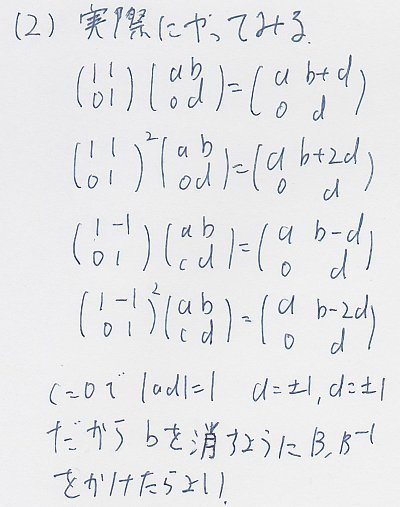 (2) 実際にやってみる.
(1 1 / 0 1)(a b / 0 d)=(a b+d / 0 d)
(1 1 / 0 1)²(a b / 0 d)=(a b+2d / 0 d)
(1 -1 / 0 1)(a b / c d)=(a b-d / 0 d)
(1 -1 / 0 1)²(a b / c d)=(a b-2d / 0 d)
c=0で |ad|=1 a=±1, d=±1
だから bを消すように B, B⁻¹
をかけたらよい!